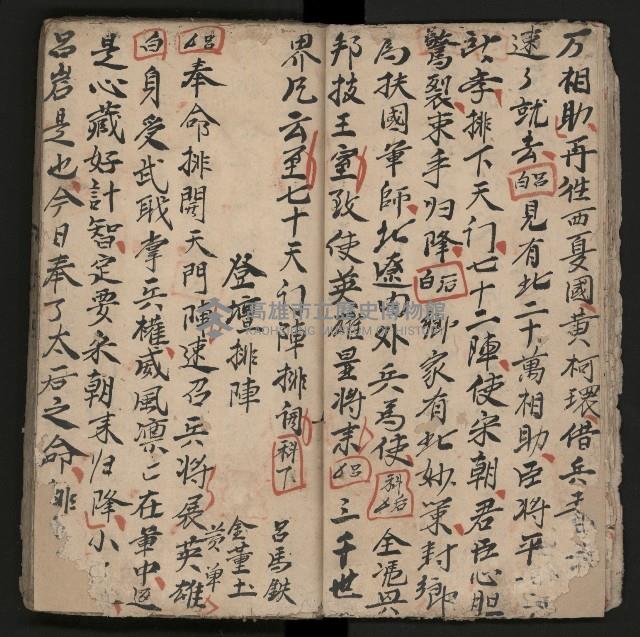 万相助、再往西夏國、黄柯環、借兵
速了就去呂白見有北二十萬相助、臣將平
、孝排下天门、七十二陣、使宋朝、君臣心胆
驚裂束手归降、后白卿家有此妙筭封鄉
為扶國軍師、北遼为外兵馬使、科后全凴
邦技王室致使英雄量將来呂三千世
界凡云至七十天门陣排词科下
呂馬鉄
登壇排陣
金董土
黄单
呂奉命排開天門陣速召兵將展英雄
白身受武戝掌兵權、威風凛〻在軍中返
是心藏好計智、定要宋朝来归降、小
呂岩是也、今日奉了太后之命、排
高雄市立歷史博物館
KAOHSIUNG MUSEUM OF HISTORY